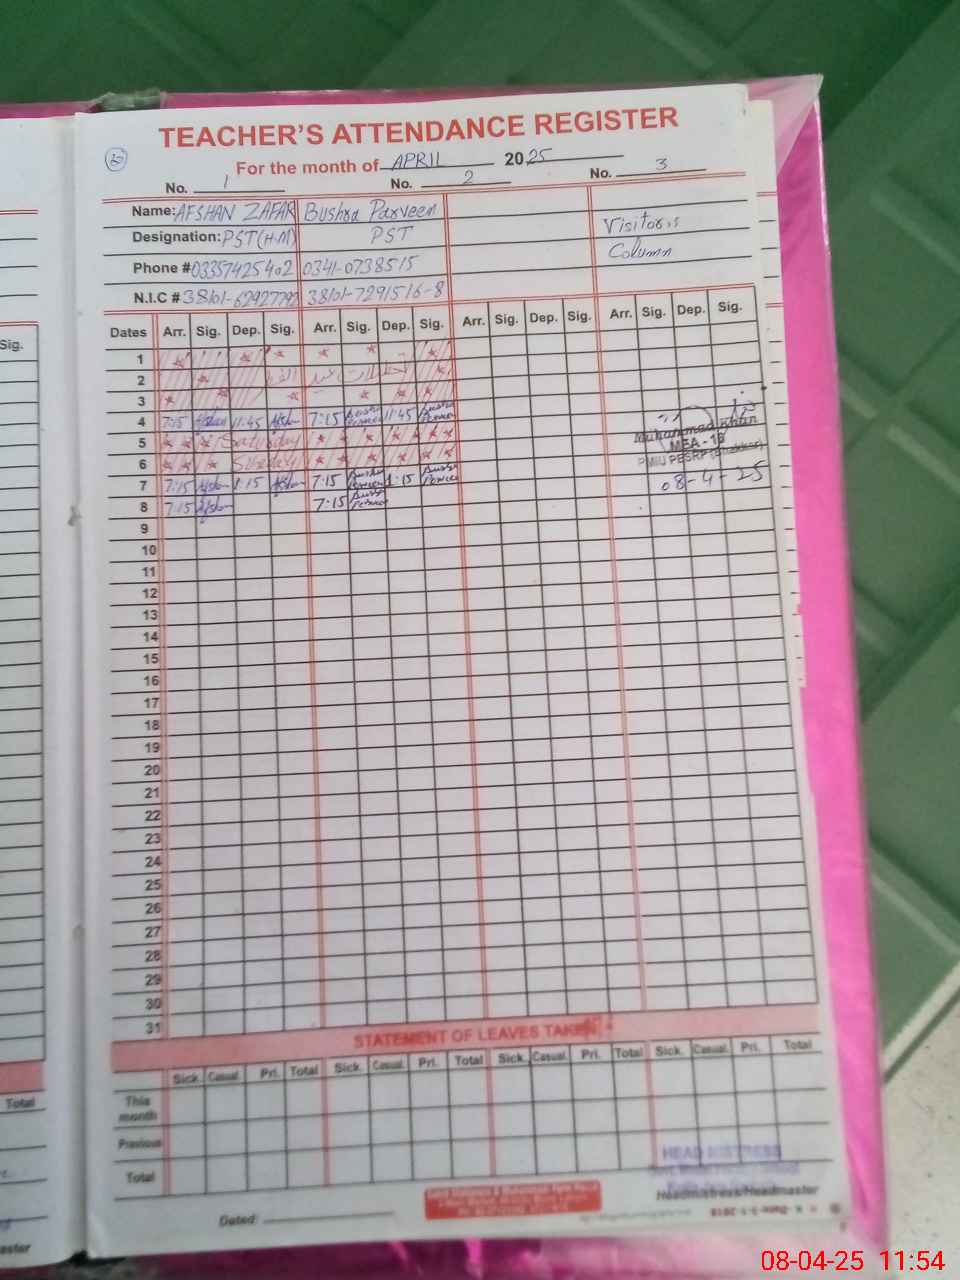 TEACHER'S ATTENDANCE REGISTER
For the month of APRIL 2025
No. 1 No. 2 No. 3
Name: AFSHAN ZAFAR Bushra Parveen
Designation: PST(H.M) PST Visitor,s
Column
Phone # 03357425402 0341-0738515
N.I.C # 38101-62927792 38101-7291516-8
Dates Arr. Sig. Dep. Sig. Arr. Sig. Dep. Sig. Arr. Sig. Dep. Sig. Arr. Sig. Dep. Sig.
1
2
3
4 7:15 Afshan 11:45 Afshan 7:15 Bushra Parveen 11:45 Bushra Parveen
Muhammad Khan
5 Saturday
MEA - 19
6 Sunday
PMIU PESRP (Bhakkar)
7 7:15 Afshan 1:15 Afshan 7:15 Bushra Parveen 1:15 Bushra Parveen
08-4-25
8 7:15 Afshan 7:15 Bushra Parveen
9
10
11
12
13
14
15
16
17
18
19
20
21
22
23
24
25
26
27
28
29
30
31
STATEMENT OF LEAVES TAKEN
Sick. Casual. Pri. Total Sick. Casual. Pri. Total Sick. Casual. Pri. Total Sick. Casual. Pri. Total
This month
Previous
Total
HEAD MISTRESS
Headmistress/Headmaster
Dated:
Sig.
Total
08-04-25 11:54